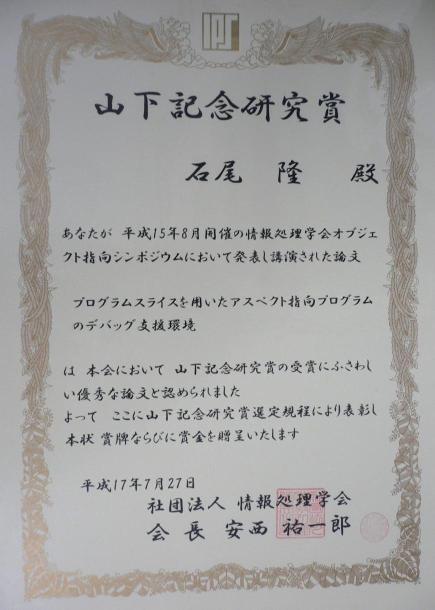 IPS
山下記念研究賞
石尾 隆 殿
あなたが 平成15年8月開催の情報処理学会オブジェ
クト指向シンポジウムにおいて発表し講演された論文
プログラムスライスを用いたアスペクト指向プログラム
のデバッグ支援環境
は 本会において 山下記念研究賞の受賞にふさわし
い優秀な論文と認められました
よって ここに山下記念研究賞選定規程により表彰し
本状 賞牌ならびに賞金を贈呈いたします
平成17年7月27日
社団法人 情報処理学会
会長 安西 祐一郎